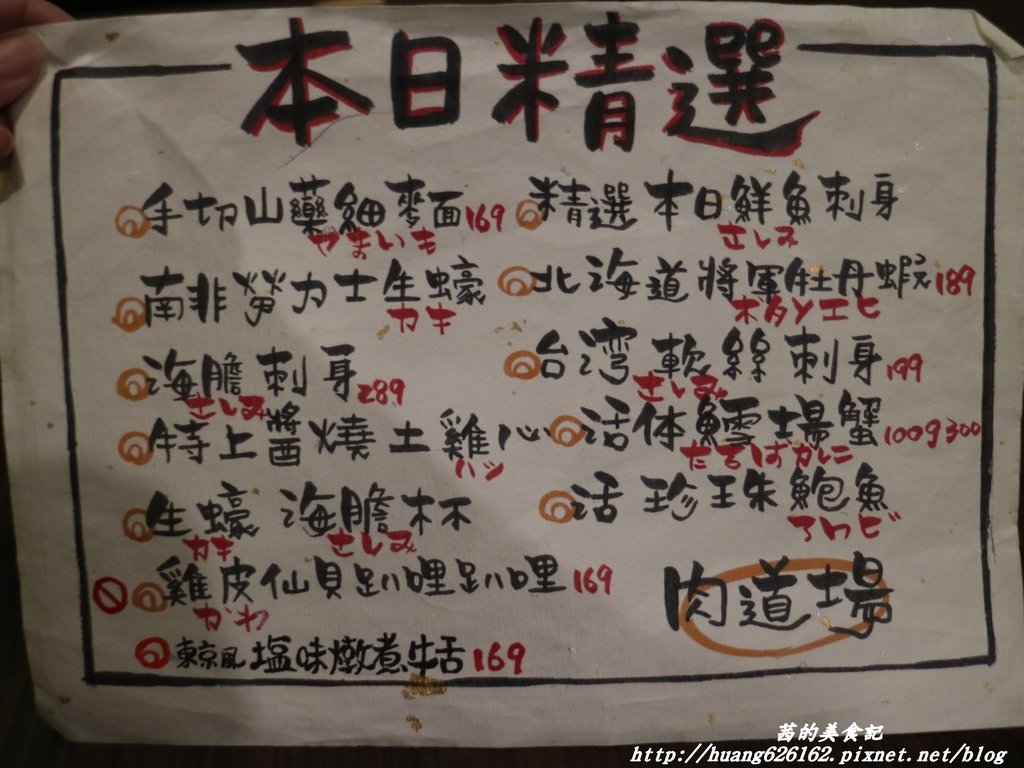 本日精選
手切山藥細麥面169
やまいも
南非勞力士生蠔
カキ
海膽刺身289
さしみ
特上醬燒土雞心
ハツ
生蠔 海膽杯
カキ さしみ
雞皮仙貝趴哩趴哩169
かわ
東京風塩味燉煮牛舌169
精選本日鮮魚刺身
さしみ
北海道將軍牡丹蝦189
ボタンエビ
台湾軟絲刺身199
さしみ
活体鱈場蟹100g300
たらばがに
活珍珠鮑魚
肉道場
茜的美食記
http://huang626162.pixnet.net/blog